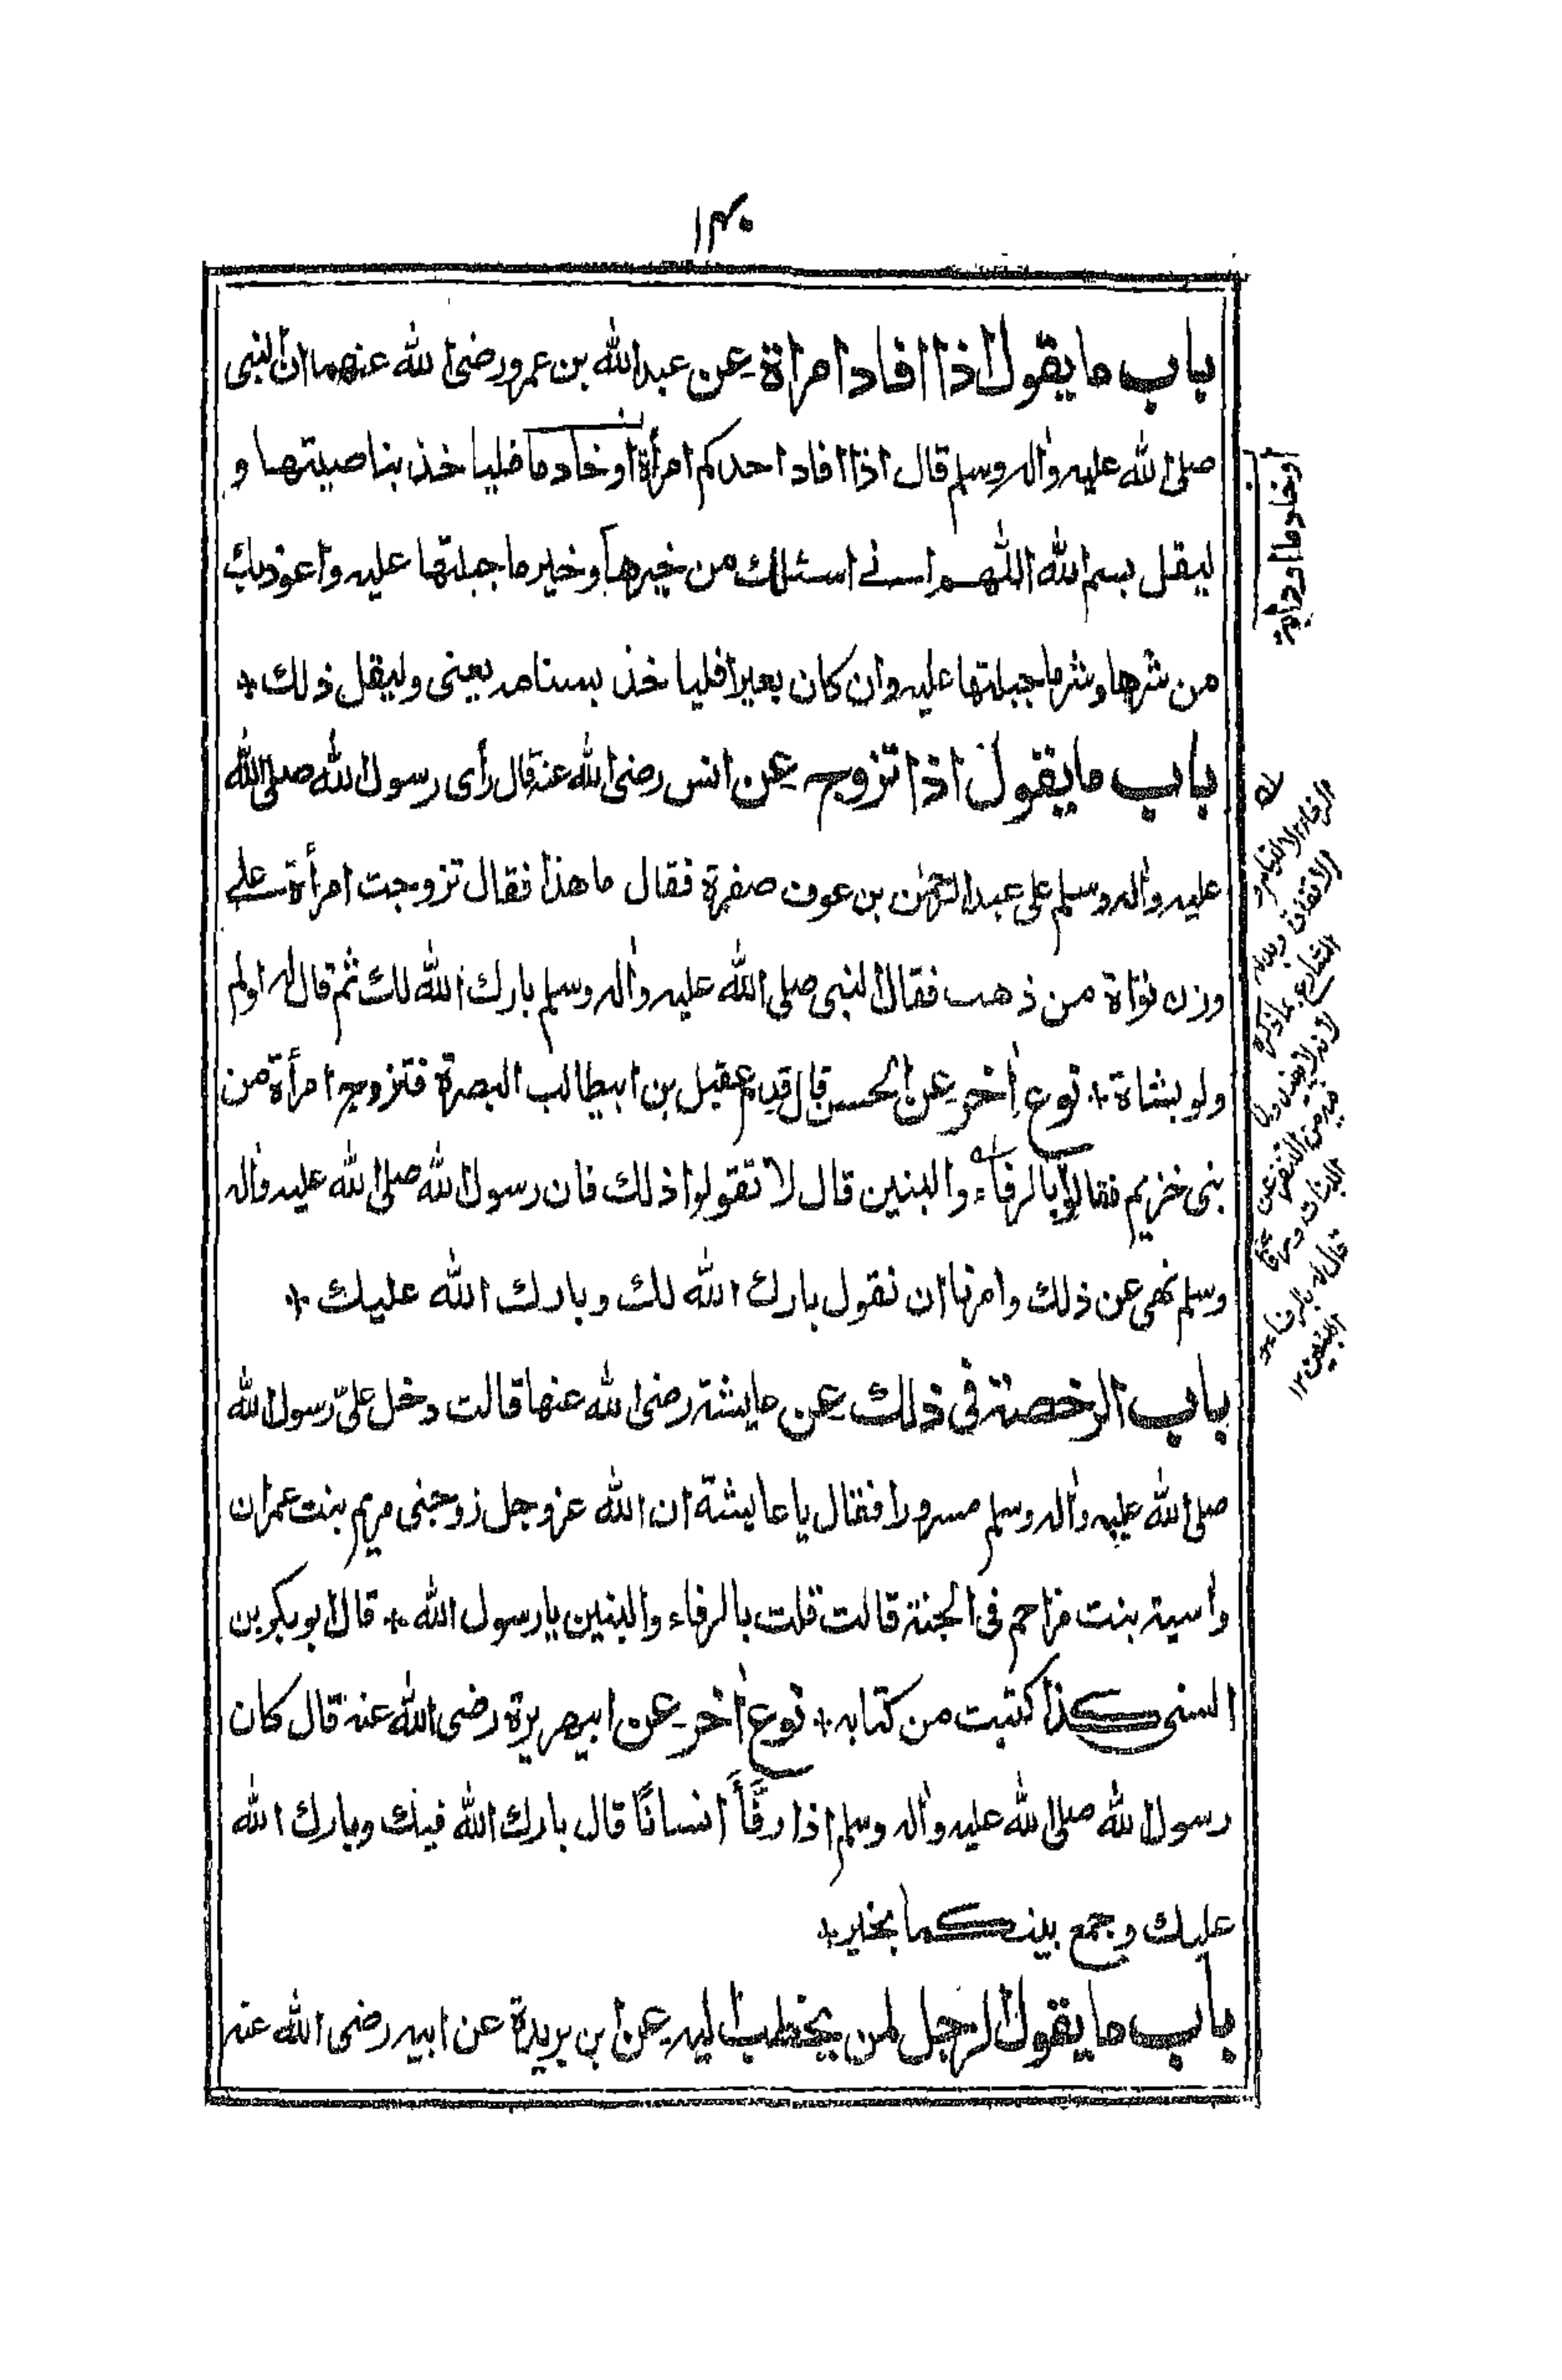 ۱۴۰
باب ما يقول اذا افاد امراة عن عبدالله بن عمرو رضى الله عنهما ان النبى
صلى الله عليه واٰله وسلم قال اذا افاد احدكم امرأة او خادما فلياخذ بناصيتها و
ليقل بسم الله اللهم انے اسئلك من خيرها وخير ما جبلتها عليه واعوذبك
من شرها وشر ما جبلتها عليه وان كان بعيرا فلياخذ بسنامه يعنى وليقل ذلك *
باب ما يقول اذا تزوج عن انس رضى الله عنه قال رأى رسول الله صلى الله
عليه واٰله وسلم على عبد الرحمٰن بن عوف صفرة فقال ما هذا فقال تزوجت امرأة علے
وزن نواة من ذهب فقال النبى صلى الله عليه واٰله وسلم بارك الله لك ثم قال له اولم
ولو بشاة * نوع اٰخر عن الحسن قال قدم عقيل بن ابيطالب البصرة فتزوج امرأة من
بنى خزيم فقالوا بالرفاء والبنين قال لا تقولوا ذلك فان رسول الله صلى الله عليه واٰله
وسلم نهى عن ذلك وامرنا ان نقول بارك الله لك وبارك الله عليك *
باب الرخصة فى ذلك عن عايشة رضى الله عنها قالت دخل علىّ رسول الله
صلى الله عليه واٰله وسلم مسرورا فقال يا عايشة ان الله عزوجل زوجنى مريم بنت عمران
واٰسية بنت مزاحم فى الجنة قالت قلت بالرفاء والبنين يا رسول الله * قال ابو بكر بن
السنى كذا كتبت من كتابه * نوع اٰخر عن ابيهريرة رضى الله عنه قال كان
رسول الله صلى الله عليه واٰله وسلم اذا رفّأ انسانًا قال بارك الله فيك وبارك الله
عليك وجمع بينكما بخير *
باب ما يقول الرجل لمن يخطب اليه عن ابن بريدة عن ابيه رضى الله عنه
او خادما او دابة
الرفاء الالتيام و
الاتفاق
البنات
بالرفاء و
البنين ۱۲